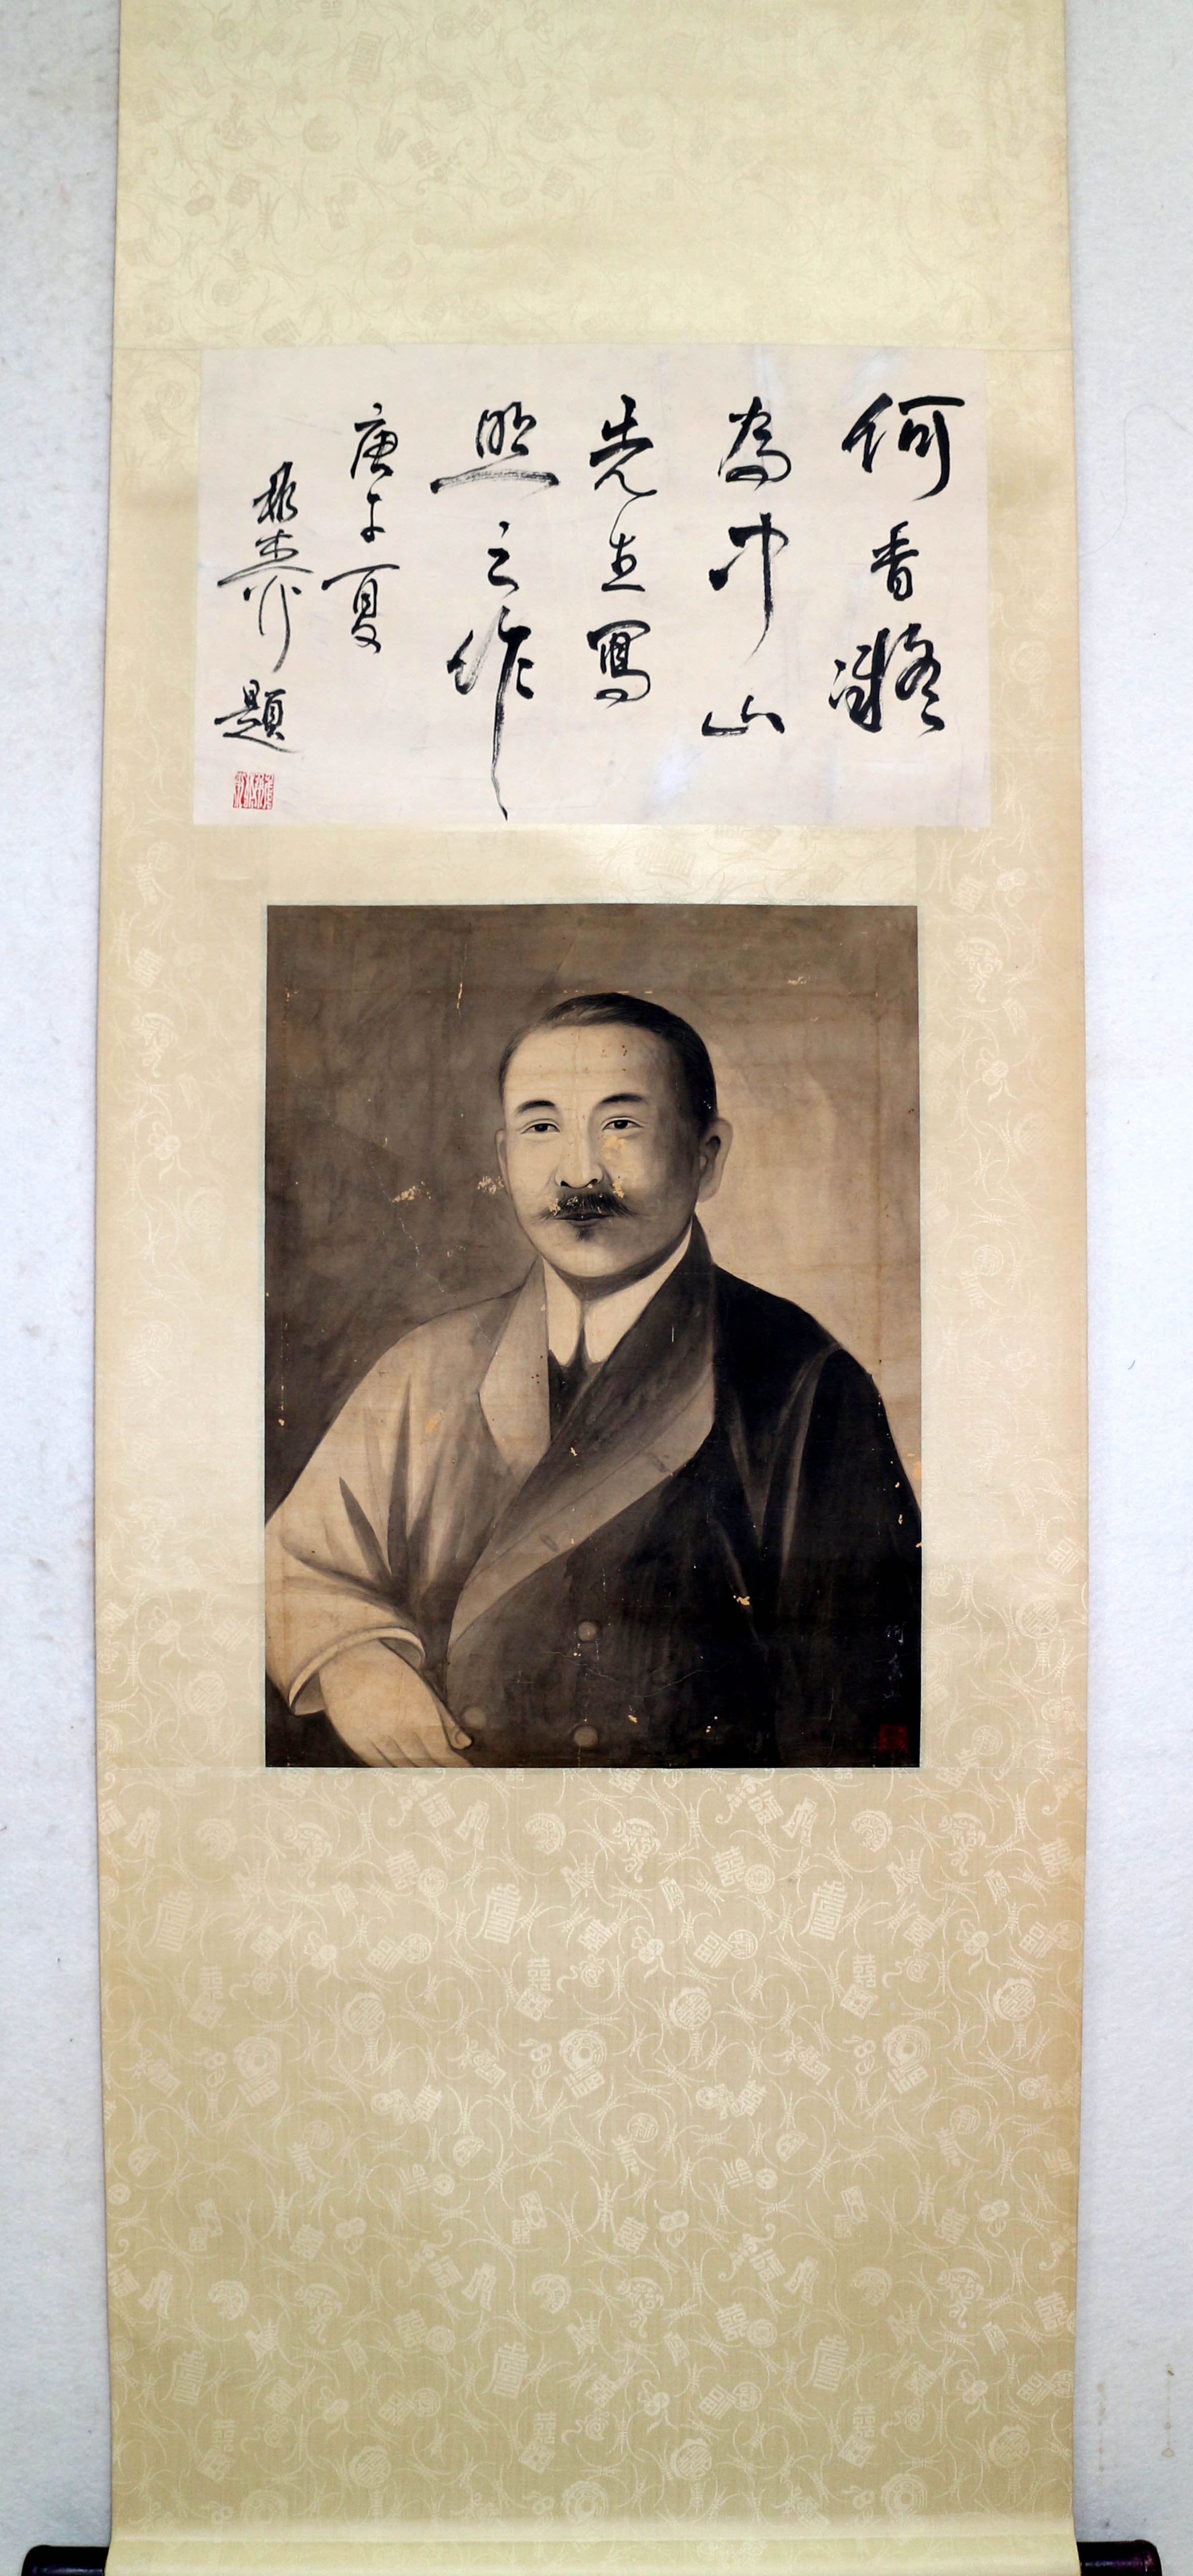 何香凝
為中山
先生寫
照之作
庚午夏
題
何香